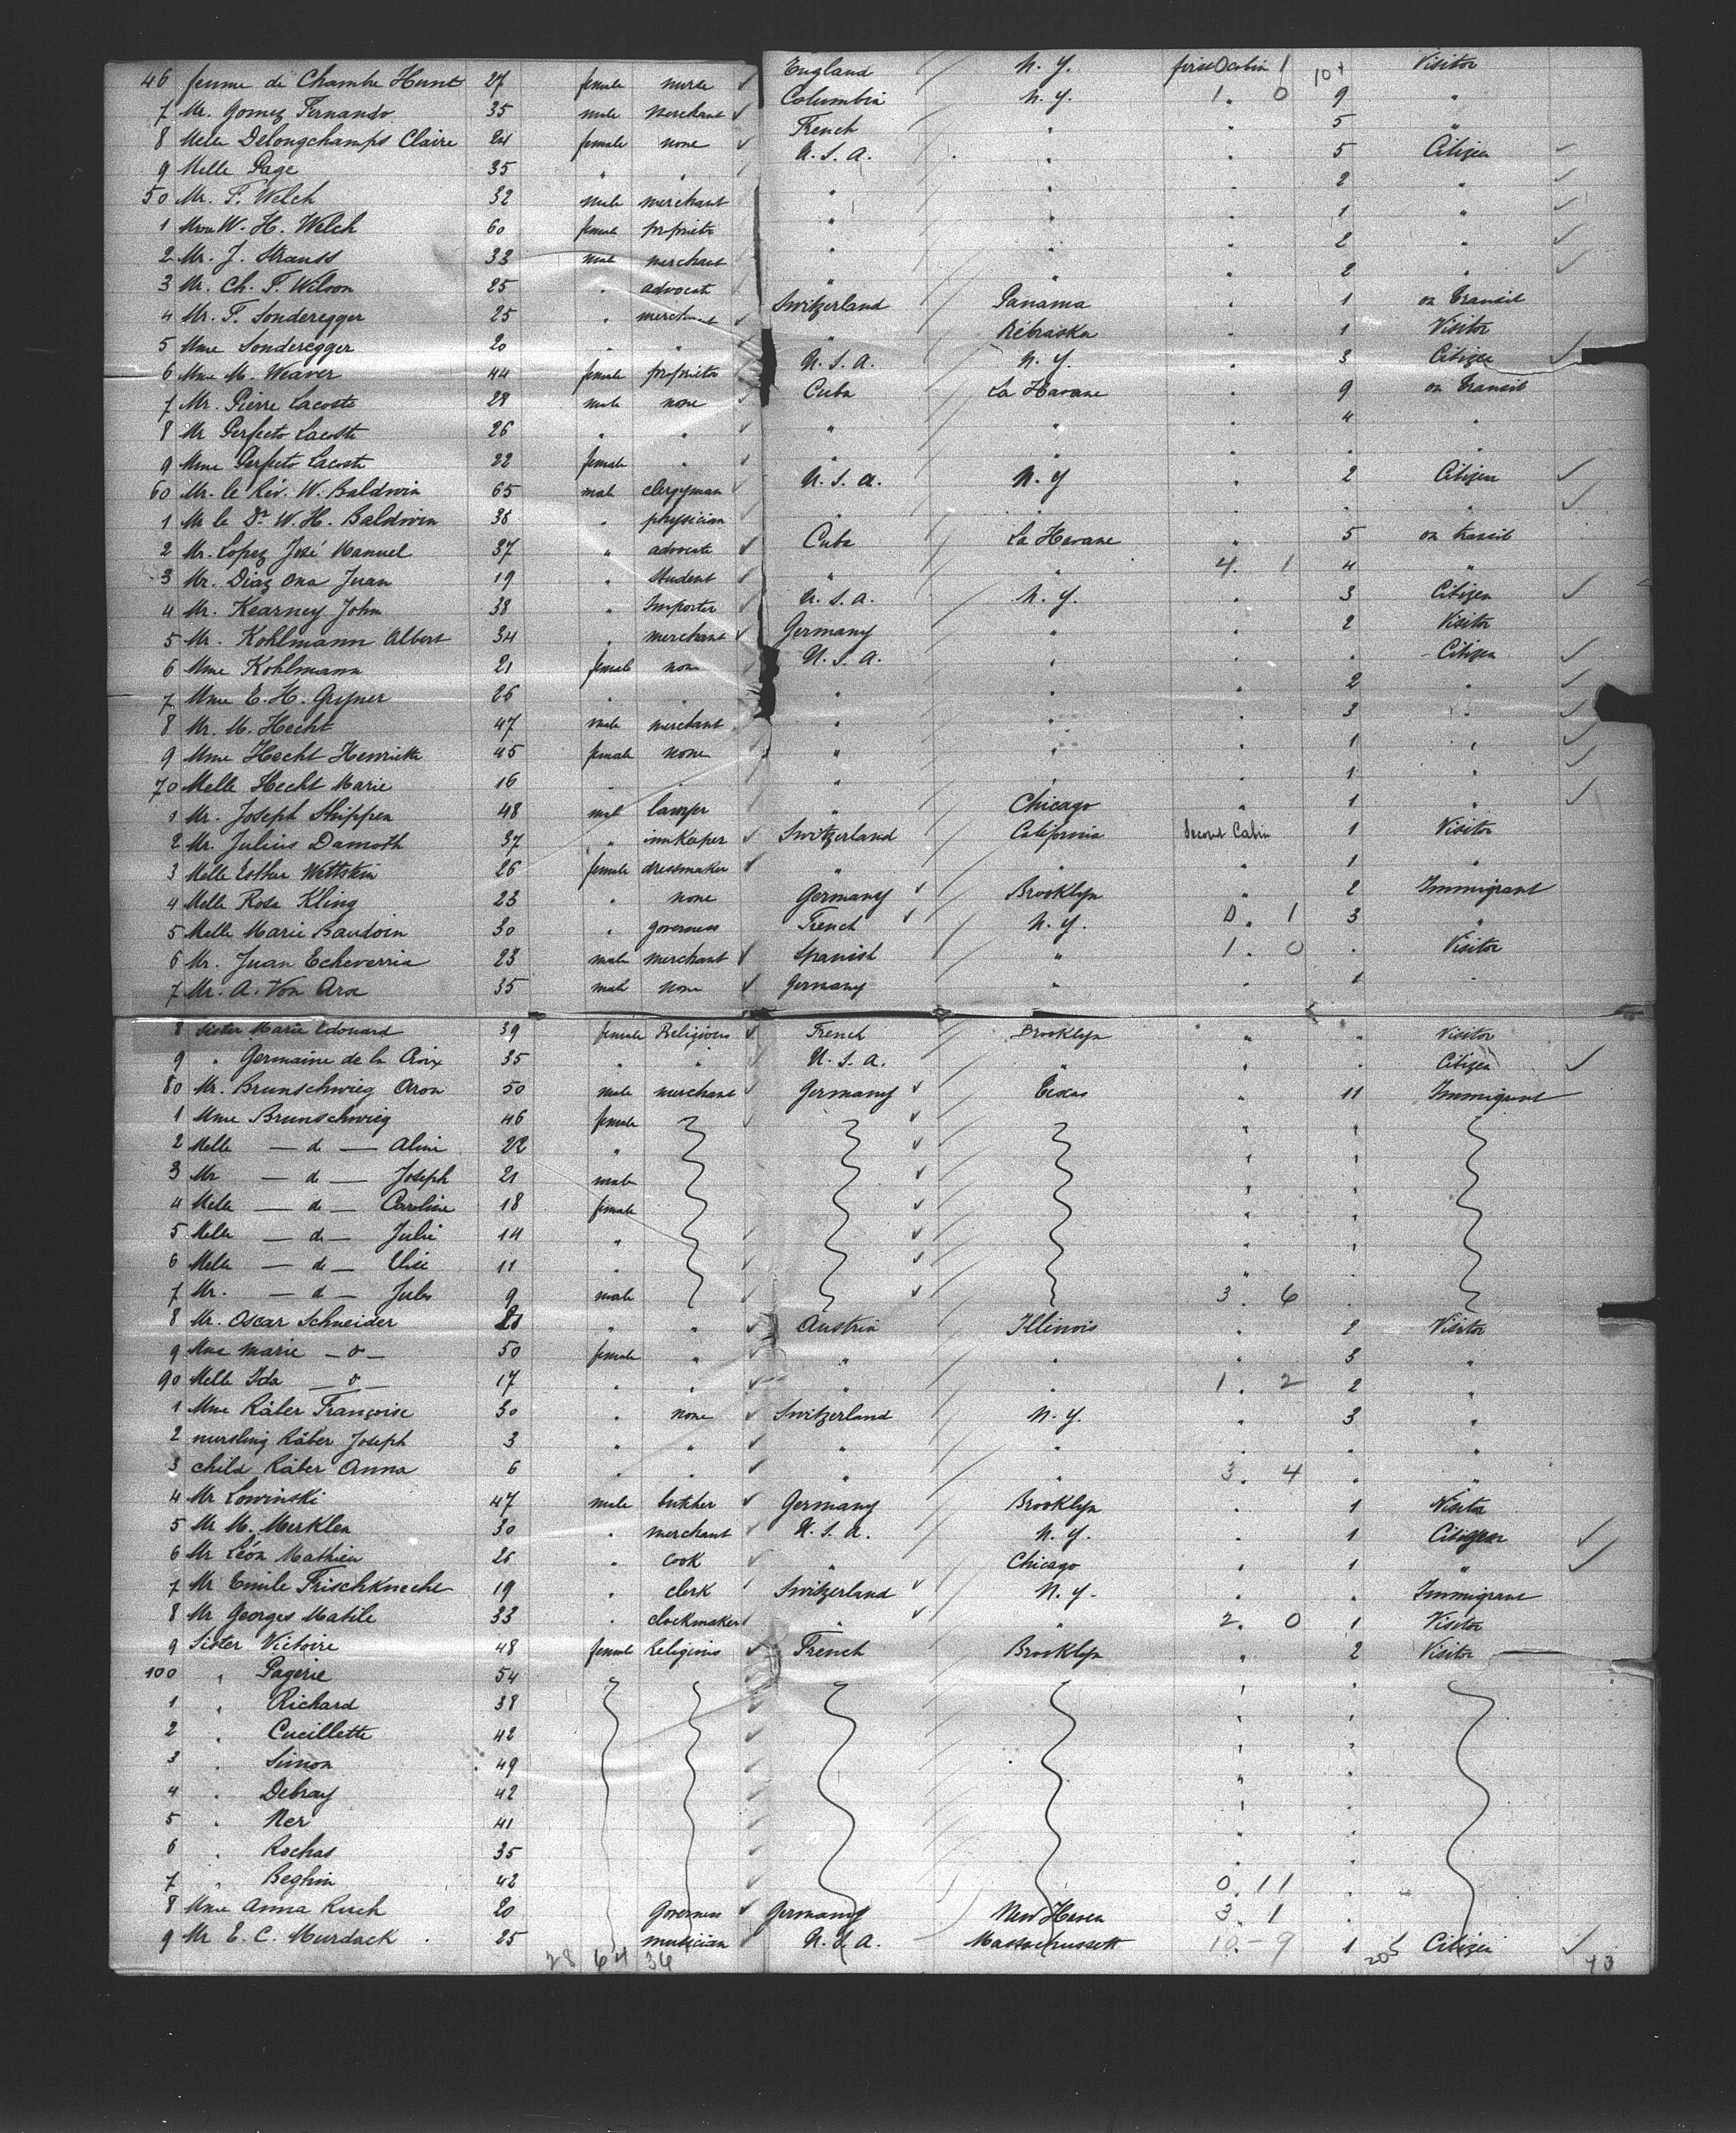 46 femme de Chambre Hunt 27 female nurse England N.Y. first Cabin 1 10+ Visitor
7 Mr. Gomez Fernando 35 male merchant Columbia N.Y. 1. 0 9 "
8 Melle Delongchamps Claire 24 female none French " " 5 "
9 Melle Page 35 " " U.S.A. " " 5 Citizen
50 Mr. F. Welch 32 male merchant " " " 2 "
1 Mme W. H. Welch 60 female proprietor " " " 1 "
2 Mr. J. Strauss 33 male merchant " " " 2 "
3 Mr. Ch. F. Wilson 25 " advocate " " " 2 "
4 Mr. F. Sonderegger 25 " merchant Switzerland Panama " 1 on transit
5 Mme Sonderegger 20 " " " Nebraska " 1 Visitor
6 Mme M. Weaver 44 female proprietor U.S.A. N.Y. " 3 Citizen
7 Mr. Pierre Lacoste 28 male none Cuba La Havane " 9 on transit
8 Mr Perfecto Lacoste 26 " " " " " 4 "
9 Mme Perfecto Lacoste 22 female " " " " " "
60 Mr. le Rév. W. Baldwin 65 male clergyman U.S.A. N.Y " 2 Citizen
1 Mr le Dr W. H. Baldwin 38 " physician " " " " "
2 Mr. Lopez José Manuel 37 " advocate Cuba La Havane " 5 on transit
3 Mr. Diaz Ona Juan 19 " student " " 4. 1 4 "
4 Mr. Kearney John 38 " Importer U.S.A. N.Y. " 3 Citizen
5 Mr. Kohlmann Albert 34 " merchant Germany " " 2 Visitor
6 Mme Kohlmann 21 female none U.S.A. " " " Citizen
7 Mme E. H. 26 " " " " " 2 "
8 Mr. M. Hecht 47 male merchant " " " 3 "
9 Mme Hecht Henriette 45 female none " " " 1 "
70 Melle Hecht Marie 16 " " " " " 1 "
1 Mr. Joseph Shippen 48 male lawyer " Chicago " 1 "
2 Mr. Julius Damoth 37 " innkeeper Switzerland California Second Cabin 1 Visitor
3 Melle Esther Wettstein 26 female dressmaker " " " 1 "
4 Melle Rosa Kling 23 " none Germany Brooklyn " 2 Immigrant
5 Melle Marie Baudoin 30 " governess French N.Y. 0. 1 3 "
6 Mr. Juan Echeverria 23 male merchant Spanish " 1. 0 " Visitor
7 Mr. A. Von Arx 35 male none Germany " " 1 "
8 Sister Marie Edouard 39 female Religious French Brooklyn " " Visitor
9 " Germaine de la Croix 35 " " U.S.A. " " " Citizen
80 Mr. Brunschwieg Aron 50 male merchant Germany Texas " 11 Immigrant
1 Mme Brunschwieg 46 female " "
2 Melle — d — Aline 22 " " "
3 Mr — d — Joseph 21 male " "
4 Melle — d — Caroline 18 female " "
5 Melle — d — Julie 14 " " "
6 Melle — d — Elise 11 " " "
7 Mr. — d — Jules 9 male 3. 6 "
8 Mr. Oscar Schneider " " Austria Illinois " 2 Visitor
9 Mme Marie — d — 50 female " " " " 3 "
90 Melle Ida — d — 17 " " " " 1. 2 2 "
1 Mme Räber Françoise 30 " none Switzerland N.Y. " 3 "
2 nursling Räber Joseph 3 " " " " " " "
3 child Räber Anna 6 " " " " 3. 4 " "
4 Mr Lowinski 47 male butcher Germany Brooklyn " 1 Visitor
5 Mr M. Merklen 30 " merchant U.S.A. N.Y. " 1 Citizen
6 Mr Léon Mathieu 26 " cook " Chicago " 1 "
7 Mr Emile Frischknecht 19 " clerk Switzerland N.Y. " " Immigrant
8 Mr Georges Matile 33 " clockmaker " " 2. 0 1 Visitor
9 Sister Victoire 48 female Religious French Brooklyn " 2 Visitor
100 " Pagerie 54 " "
1 " Richard 38 " "
2 " Cueillette 42 " "
3 " Simon 49 " "
4 " Debray 42 " "
5 " Ner 41 " "
6 " Rochas 35 " "
7 " Beghin 42 0. 11 "
8 Mme Anna Rusch 20 Governess Germany New Haven 3. 1 "
9 Mr E. C. Murdack 25 musician U.S.A. Massachussett 10-9 1 Citizen
28 64 36 205 43